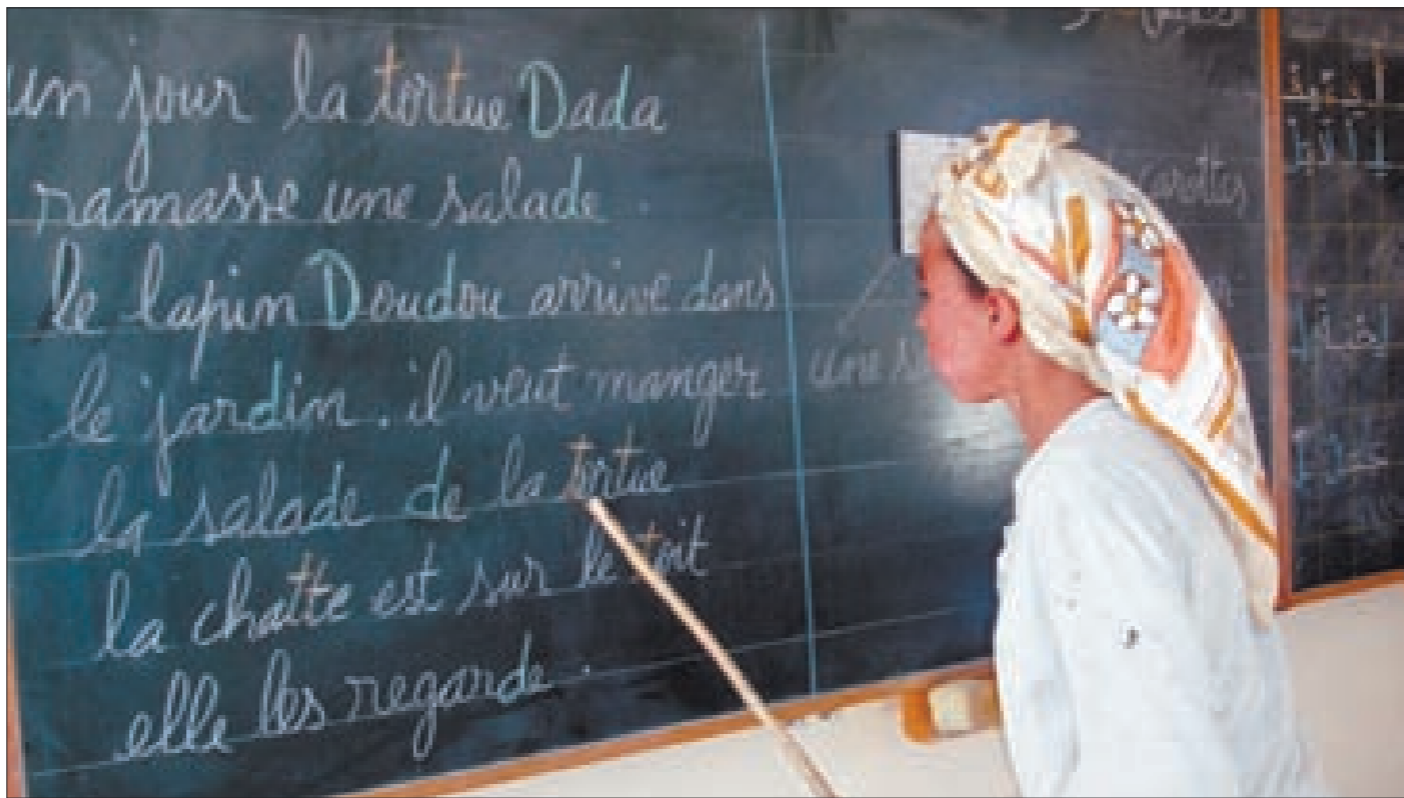 un jour la tortue Dada
ramasse une salade.
le lapin Doudou arrive dans
le jardin. il veut manger
la salade de la tortue
la chatte est sur le toit
elle les regarde.
carottes
une